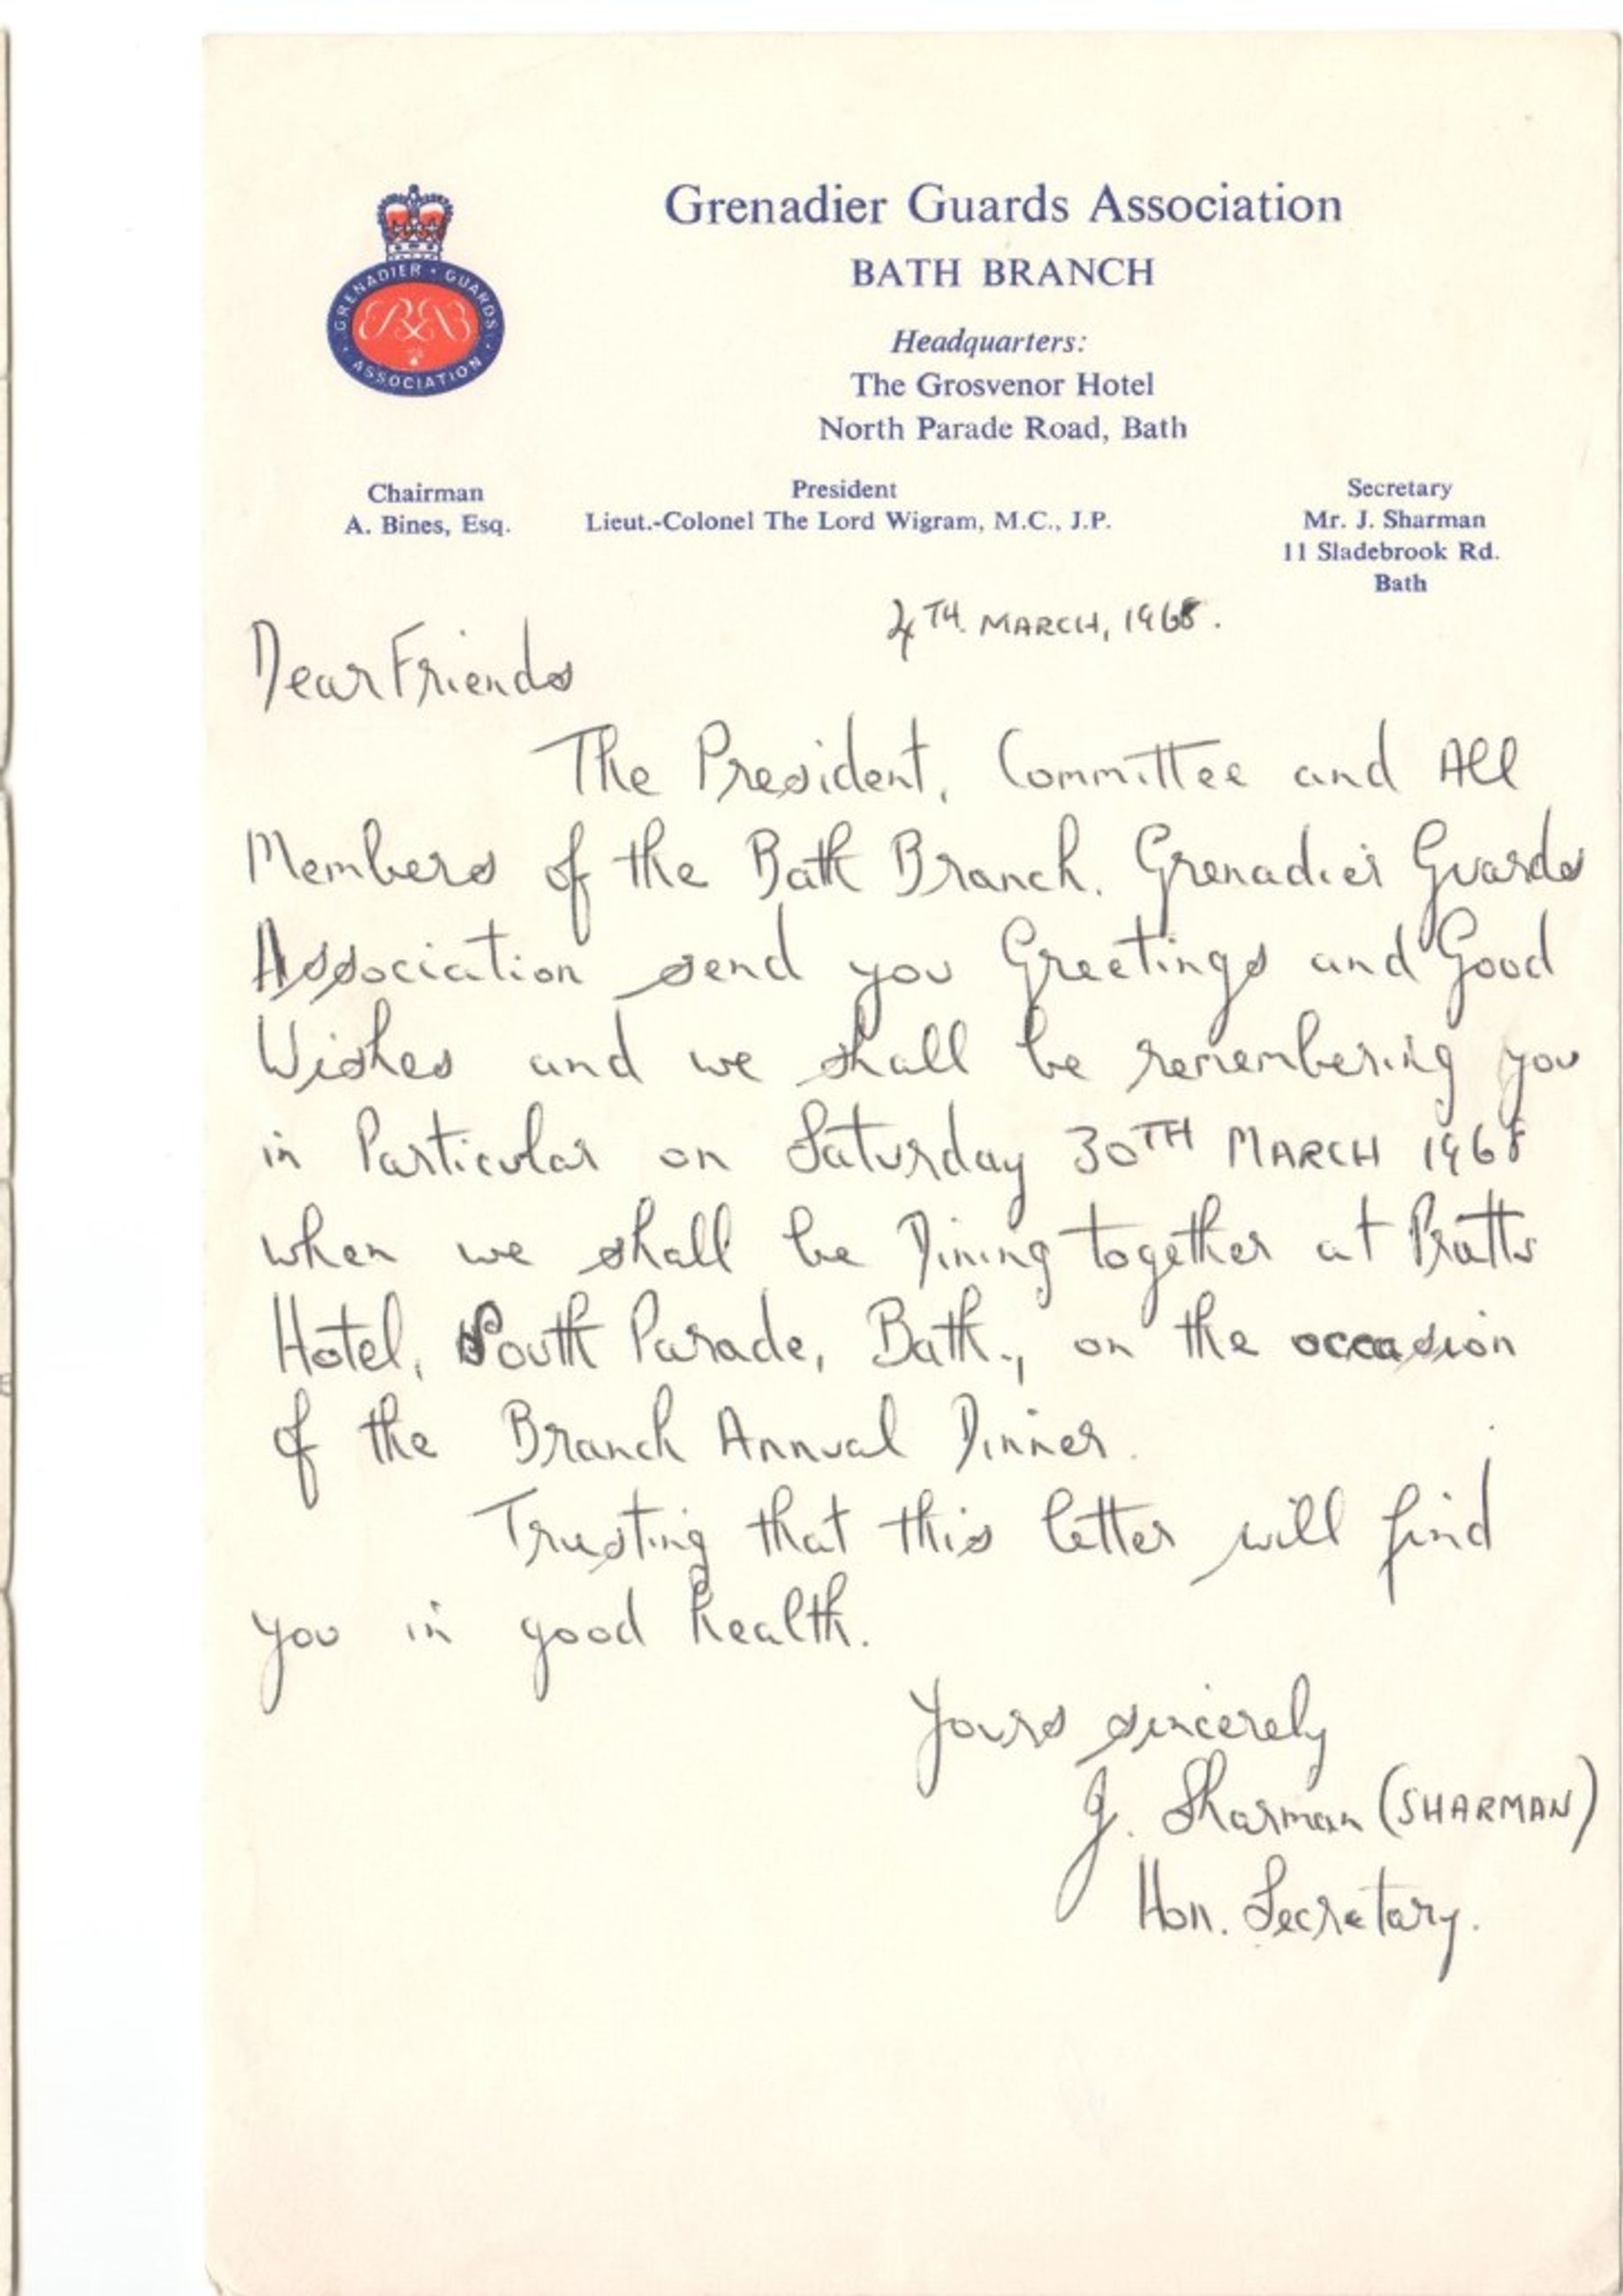 Grenadier Guards Association
BATH BRANCH
GRENADIER · GUARDS · ASSOCIATION
Headquarters:
The Grosvenor Hotel
North Parade Road, Bath
Chairman
A. Bines, Esq.
President
Lieut.-Colonel The Lord Wigram, M.C., J.P.
Secretary
Mr. J. Sharman
11 Sladebrook Rd.
Bath
4TH. MARCH, 1968.
Dear Friends
The President, Committee and All
Members of the Bath Branch. Grenadier Guards
Association send you Greetings and Good
Wishes and we shall be remembering you
in Particular on Saturday 30TH MARCH 1968
when we shall be Dining together at Pratts
Hotel, South Parade, Bath., on the occasion
of the Branch Annual Dinner.
Trusting that this letter will find
you in good health.
Yours sincerely
J. Sharman (SHARMAN)
Hon. Secretary.